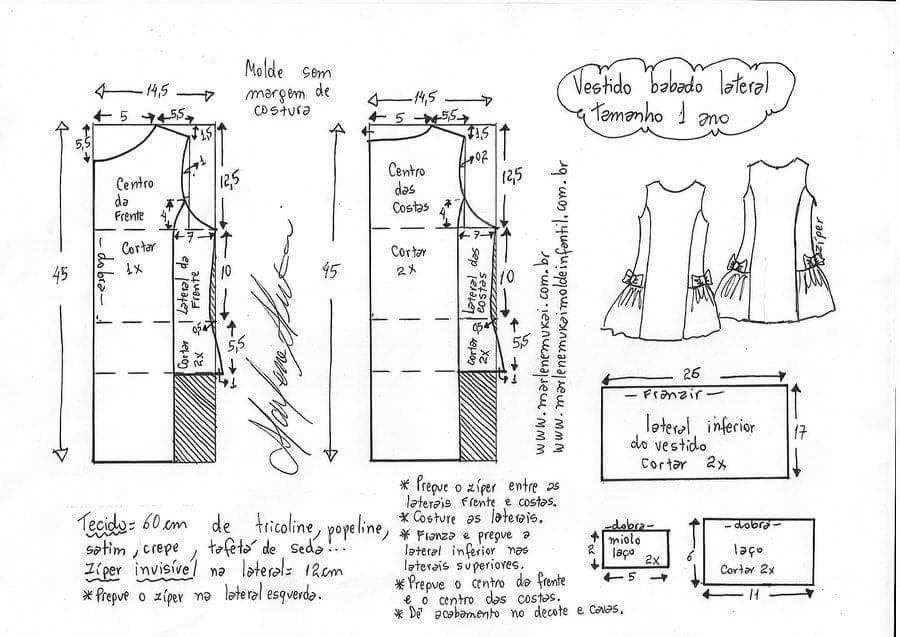 Molde sem
margem de
costura
Vestido babado lateral
tamanho 1 ano
14,5
5
5,5
5,5
1,5
1
12,5
Centro
da
Frente
4
7
Cortar
1x
-- dobra --
45
Lateral da
Frente
10
0,5
5,5
Cortar
2x
1
14,5
5
5,5
1,5
02
12,5
Centro
das
Costas
4
7
Cortar
2x
45
Lateral das
costas
10
0,5
5,5
Cortar
2x
1
www.marlenemukai.com.br
www.marlenemukaimoldeinfantil.com.br
zíper
26
— Franzir —
lateral inferior
do vestido
Cortar 2x
17
-dobra-
miolo
laço
2x
2
5
-dobra-
laço
Cortar 2x
6
11
Tecido= 60cm de tricoline, popeline,
satim, crepe, tafetá de seda...
Zíper invisível na lateral= 12cm
* Prepue o zíper na lateral esquerda.
* Prepue o zíper entre as
laterais frente e costas.
* Costure as laterais.
* Franza e prepue a
lateral inferior nas
laterais superiores.
* Prepue o centro da frente
e o centro das costas.
* Dê acabamento no decote e cavas.